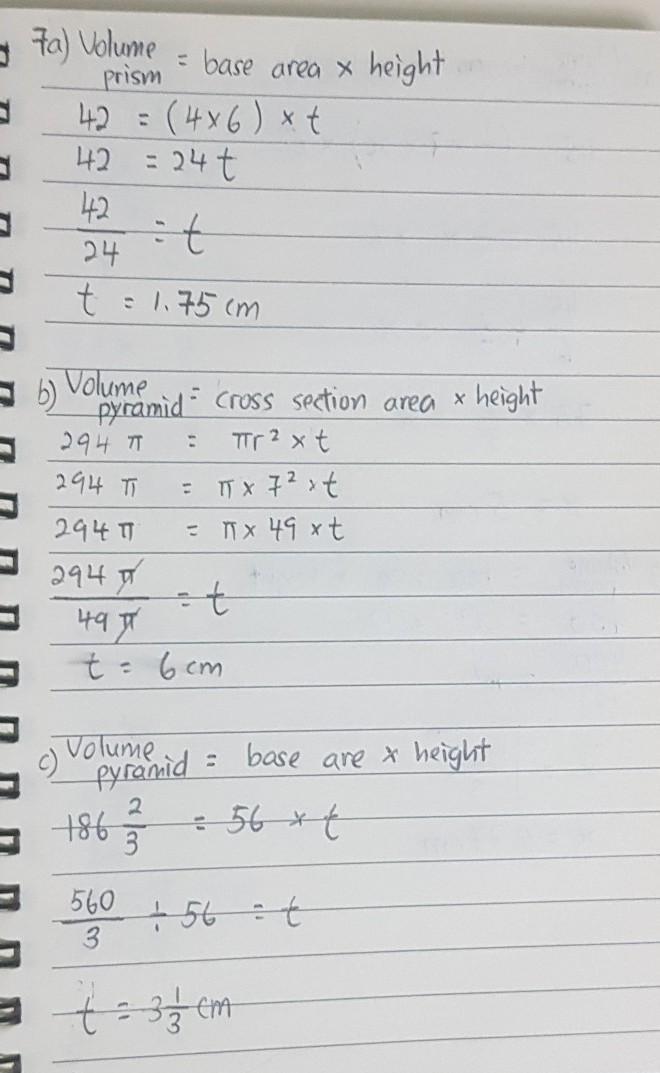 7a) Volume prism = base area x height
42 = (4x6) x t
42 = 24 t
42/24 = t
t = 1.75 cm
b) Volume pyramid = cross section area x height
294 π = πr² x t
294 π = π x 7² x t
294 π = π x 49 x t
294 π/49 π = t
t = 6 cm
c) Volume pyramid = base are x height
186 2/3 = 56 x t
560/3 ÷ 56 = t
t = 3 1/3 cm